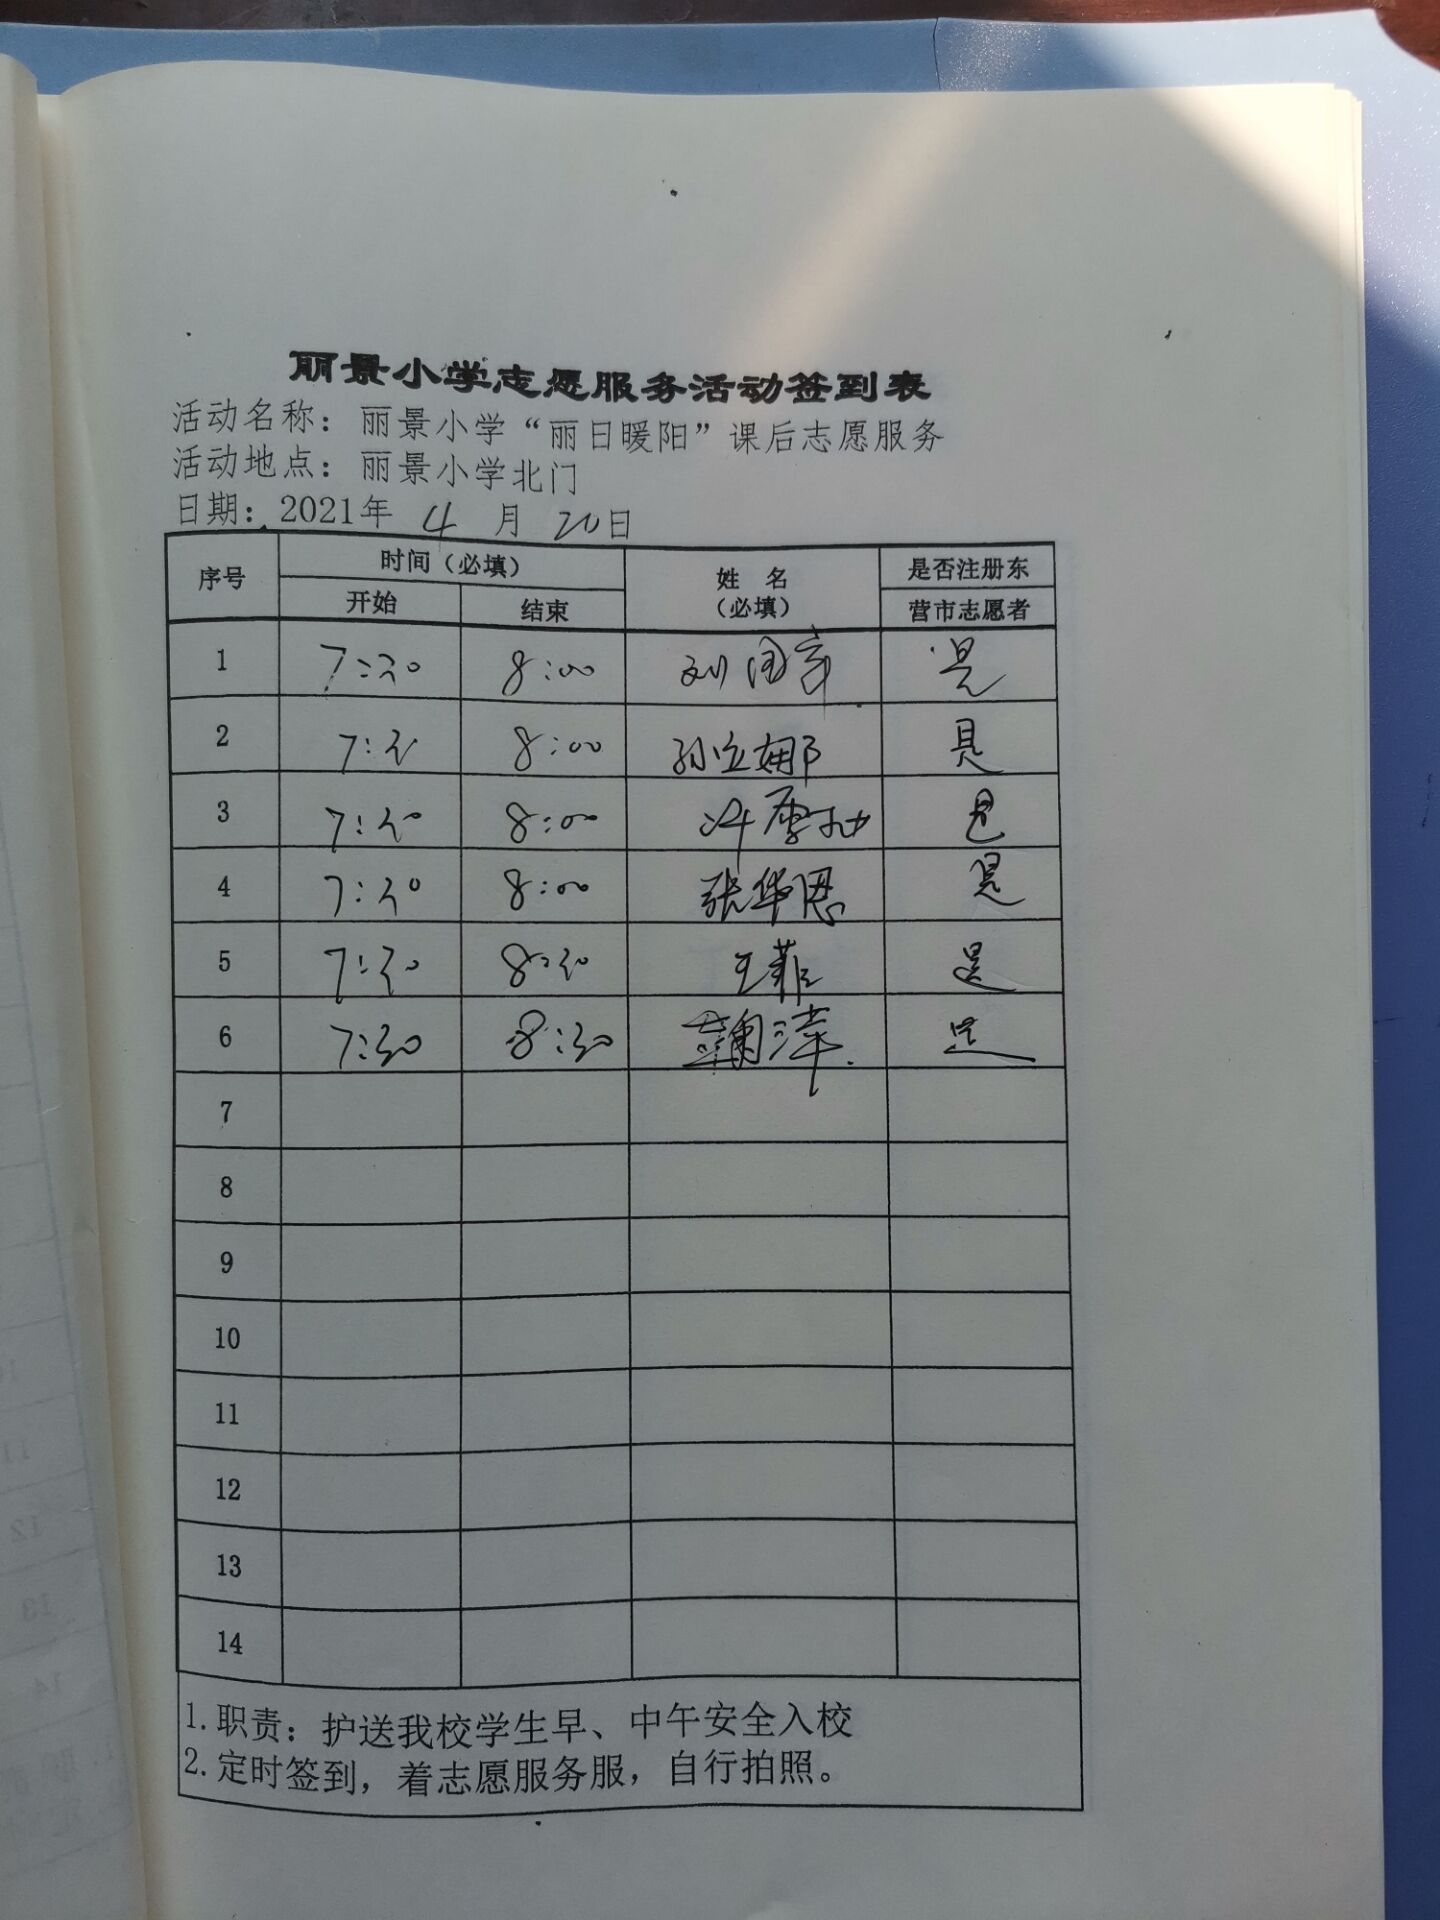 丽景小学志愿服务活动签到表
活动名称：丽景小学“丽日暖阳”课后志愿服务
活动地点：丽景小学北门
日期：2021年 4 月 20日
序号 时间（必填） 姓 名 （必填） 是否注册东
开始 结束 营市志愿者
1 7:30 8:00 刘国 是
2 7:30 8:00 孙立娜 是
3 7:30 8:00 是
4 7:30 8:00 张华恩 是
5 7:30 8:30 王菲 是
6 7:30 8:30 是
7
8
9
10
11
12
13
14
1. 职责：护送我校学生早、中午安全入校
2. 定时签到，着志愿服务服，自行拍照。